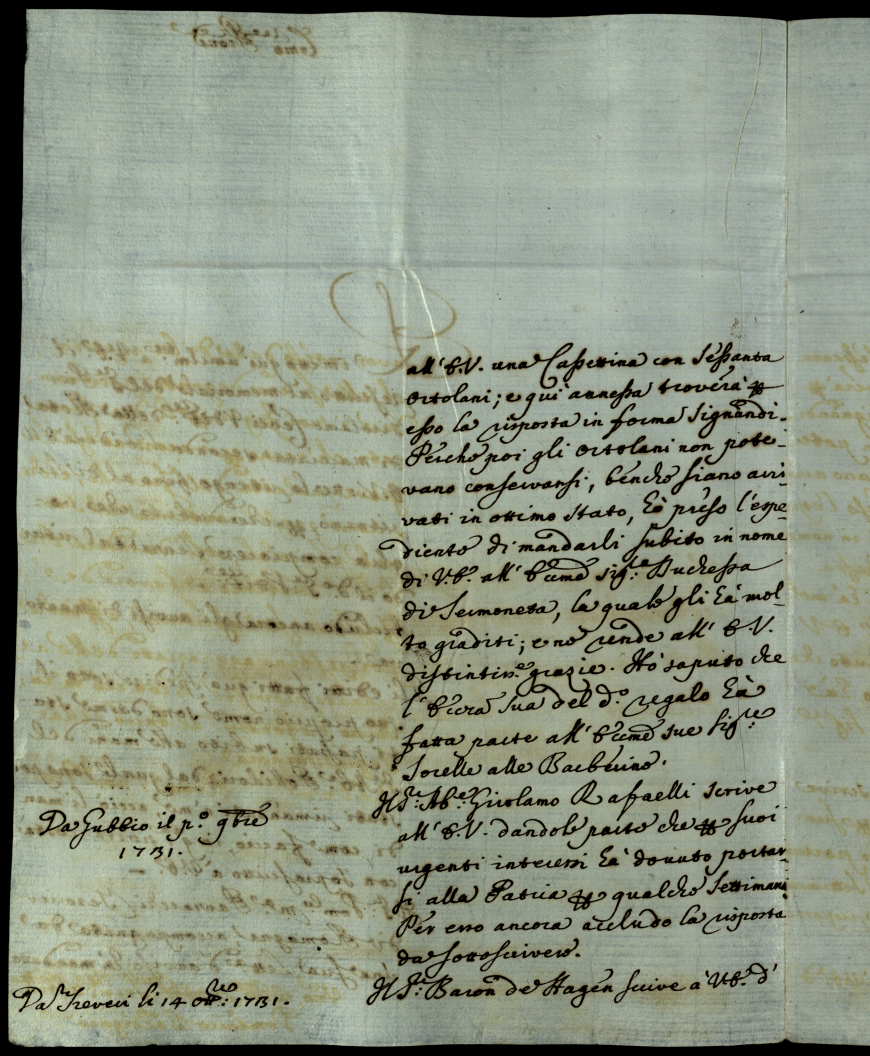 all' E.V. una Cassettina con Sessanta
Ortolani; e qui annessa troverà p
esso la risposta in forma signandi.
Perche poi gli Ortolani non pote-
vano conservarsi, benche siano arri-
vati in ottimo stato, hà preso l'espe-
diente di mandarli subito in nome
di V.E. all' Eccma sig.ra Duchessa
di Sermoneta, la quale gli hà mol-
to graditi; e ne rende all' E.V.
distintime grazie. Hò saputo che
l'Eccza Sua del do. regalo hà
fatta parte all' Eccme sue Sig.re
Sorelle alle Barberine.
Il S.r Ab.e Girolamo Rafaelli scrive
all' E.V. dandole parte che p suoi
urgenti interessi hà dovuto portar-
si alla Patria p qualche Settimana
Per esso ancora accludo la risposta
da sottoscivere.
Il S.r Baron de Hagen scrive à V.E. d'
Da Gubbio il p.o 9bre
1731.
Da Treveri li 14 Ottre: 1731.